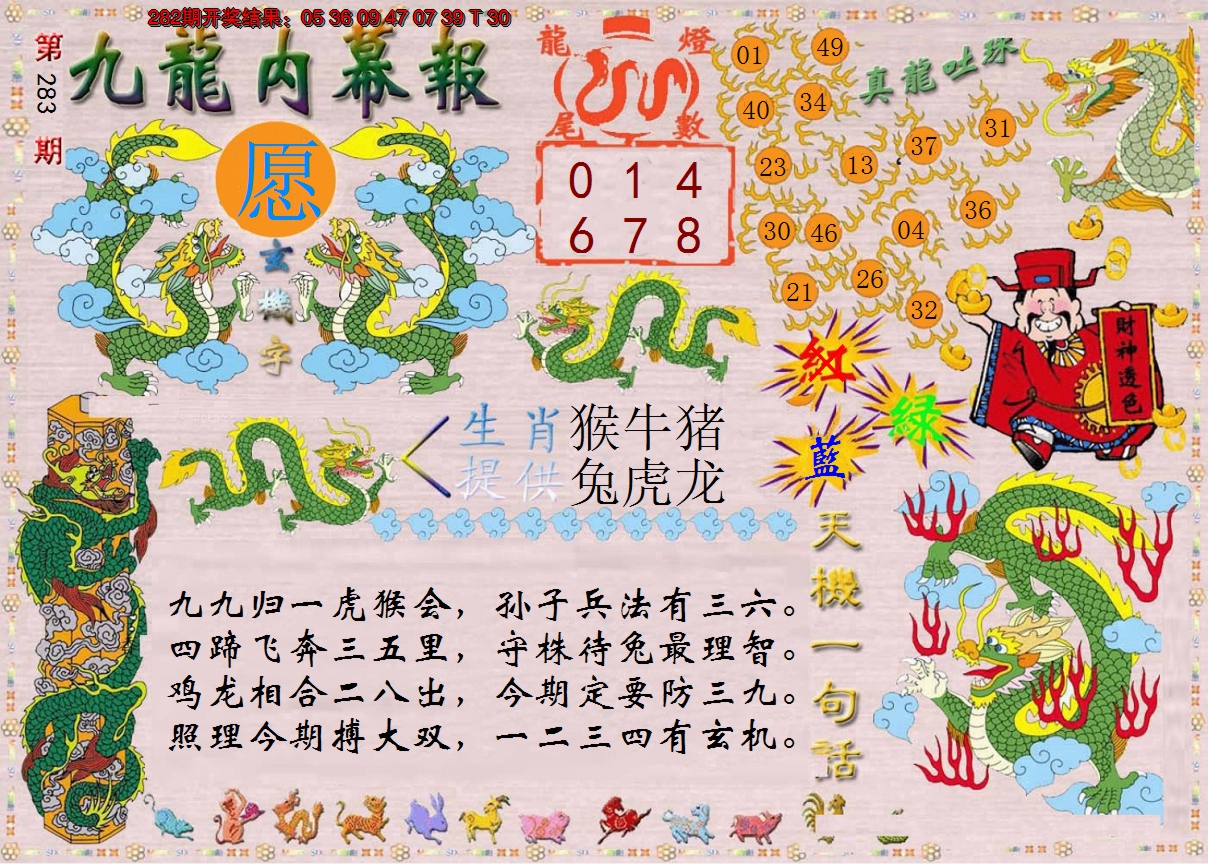 282期开奖结果：05 36 09 47 07 39 T 30
第283期
九龍内幕報
龍燈
尾數
0 1 4
6 7 8
真龍吐珠
01
49
40
34
23
13
37
31
30
46
04
36
21
26
32
愿
玄機字
紅
綠
藍
財神透色
生肖提供
猴牛猪
兔虎龙
天機一句話
九九归一虎猴会，孙子兵法有三六。
四蹄飞奔三五里，守株待兔最理智。
鸡龙相合二八出，今期定要防三九。
照理今期搏大双，一二三四有玄机。